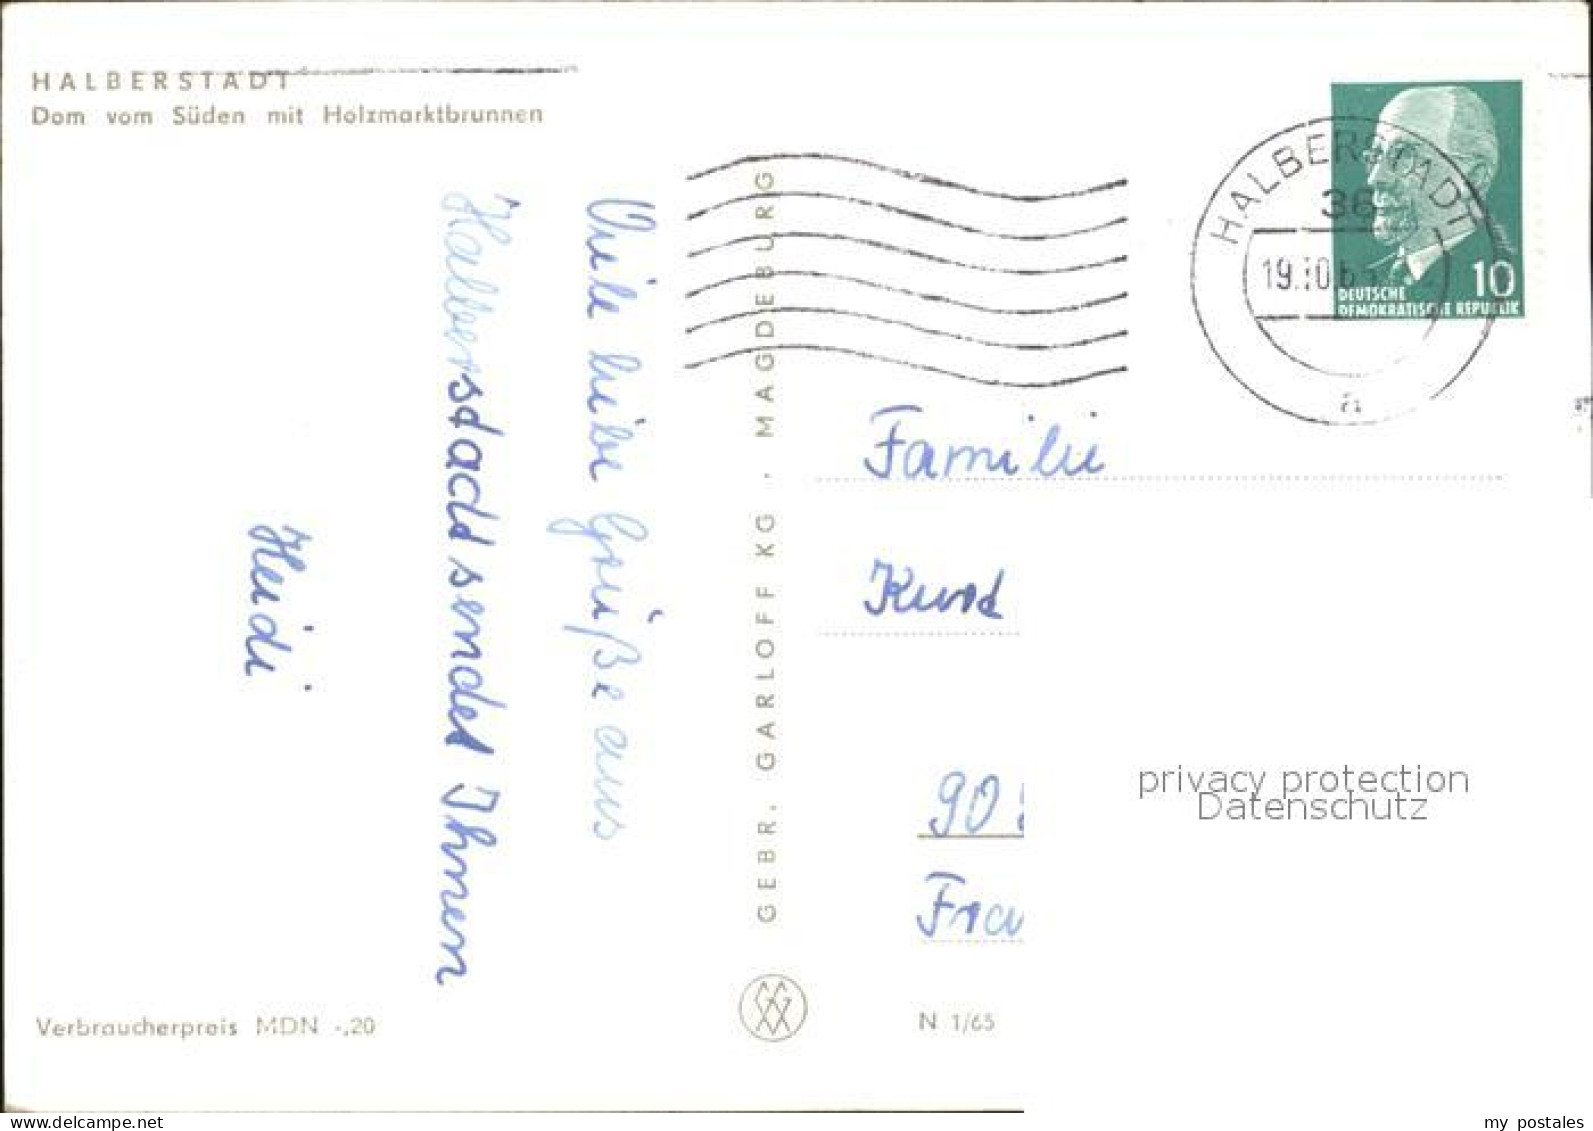 HALBERSTADT
Dom vom Süden mit Holzmarktbrunnen
Viele liebe Grüße aus
Halberstadt sendet Ihnen
Heidi
Verbraucherpreis MDN -,20
GEBR. GARLOFF KG · MAGDEBURG
HALBERSTADT
36
19.10.6
a
10
DEUTSCHE
DEMOKRATISCHE REPUBLIK
Familie
Kurt
90
Fra
N 1/65
privacy protection
Datenschutz
www.delcampe.net
my postales